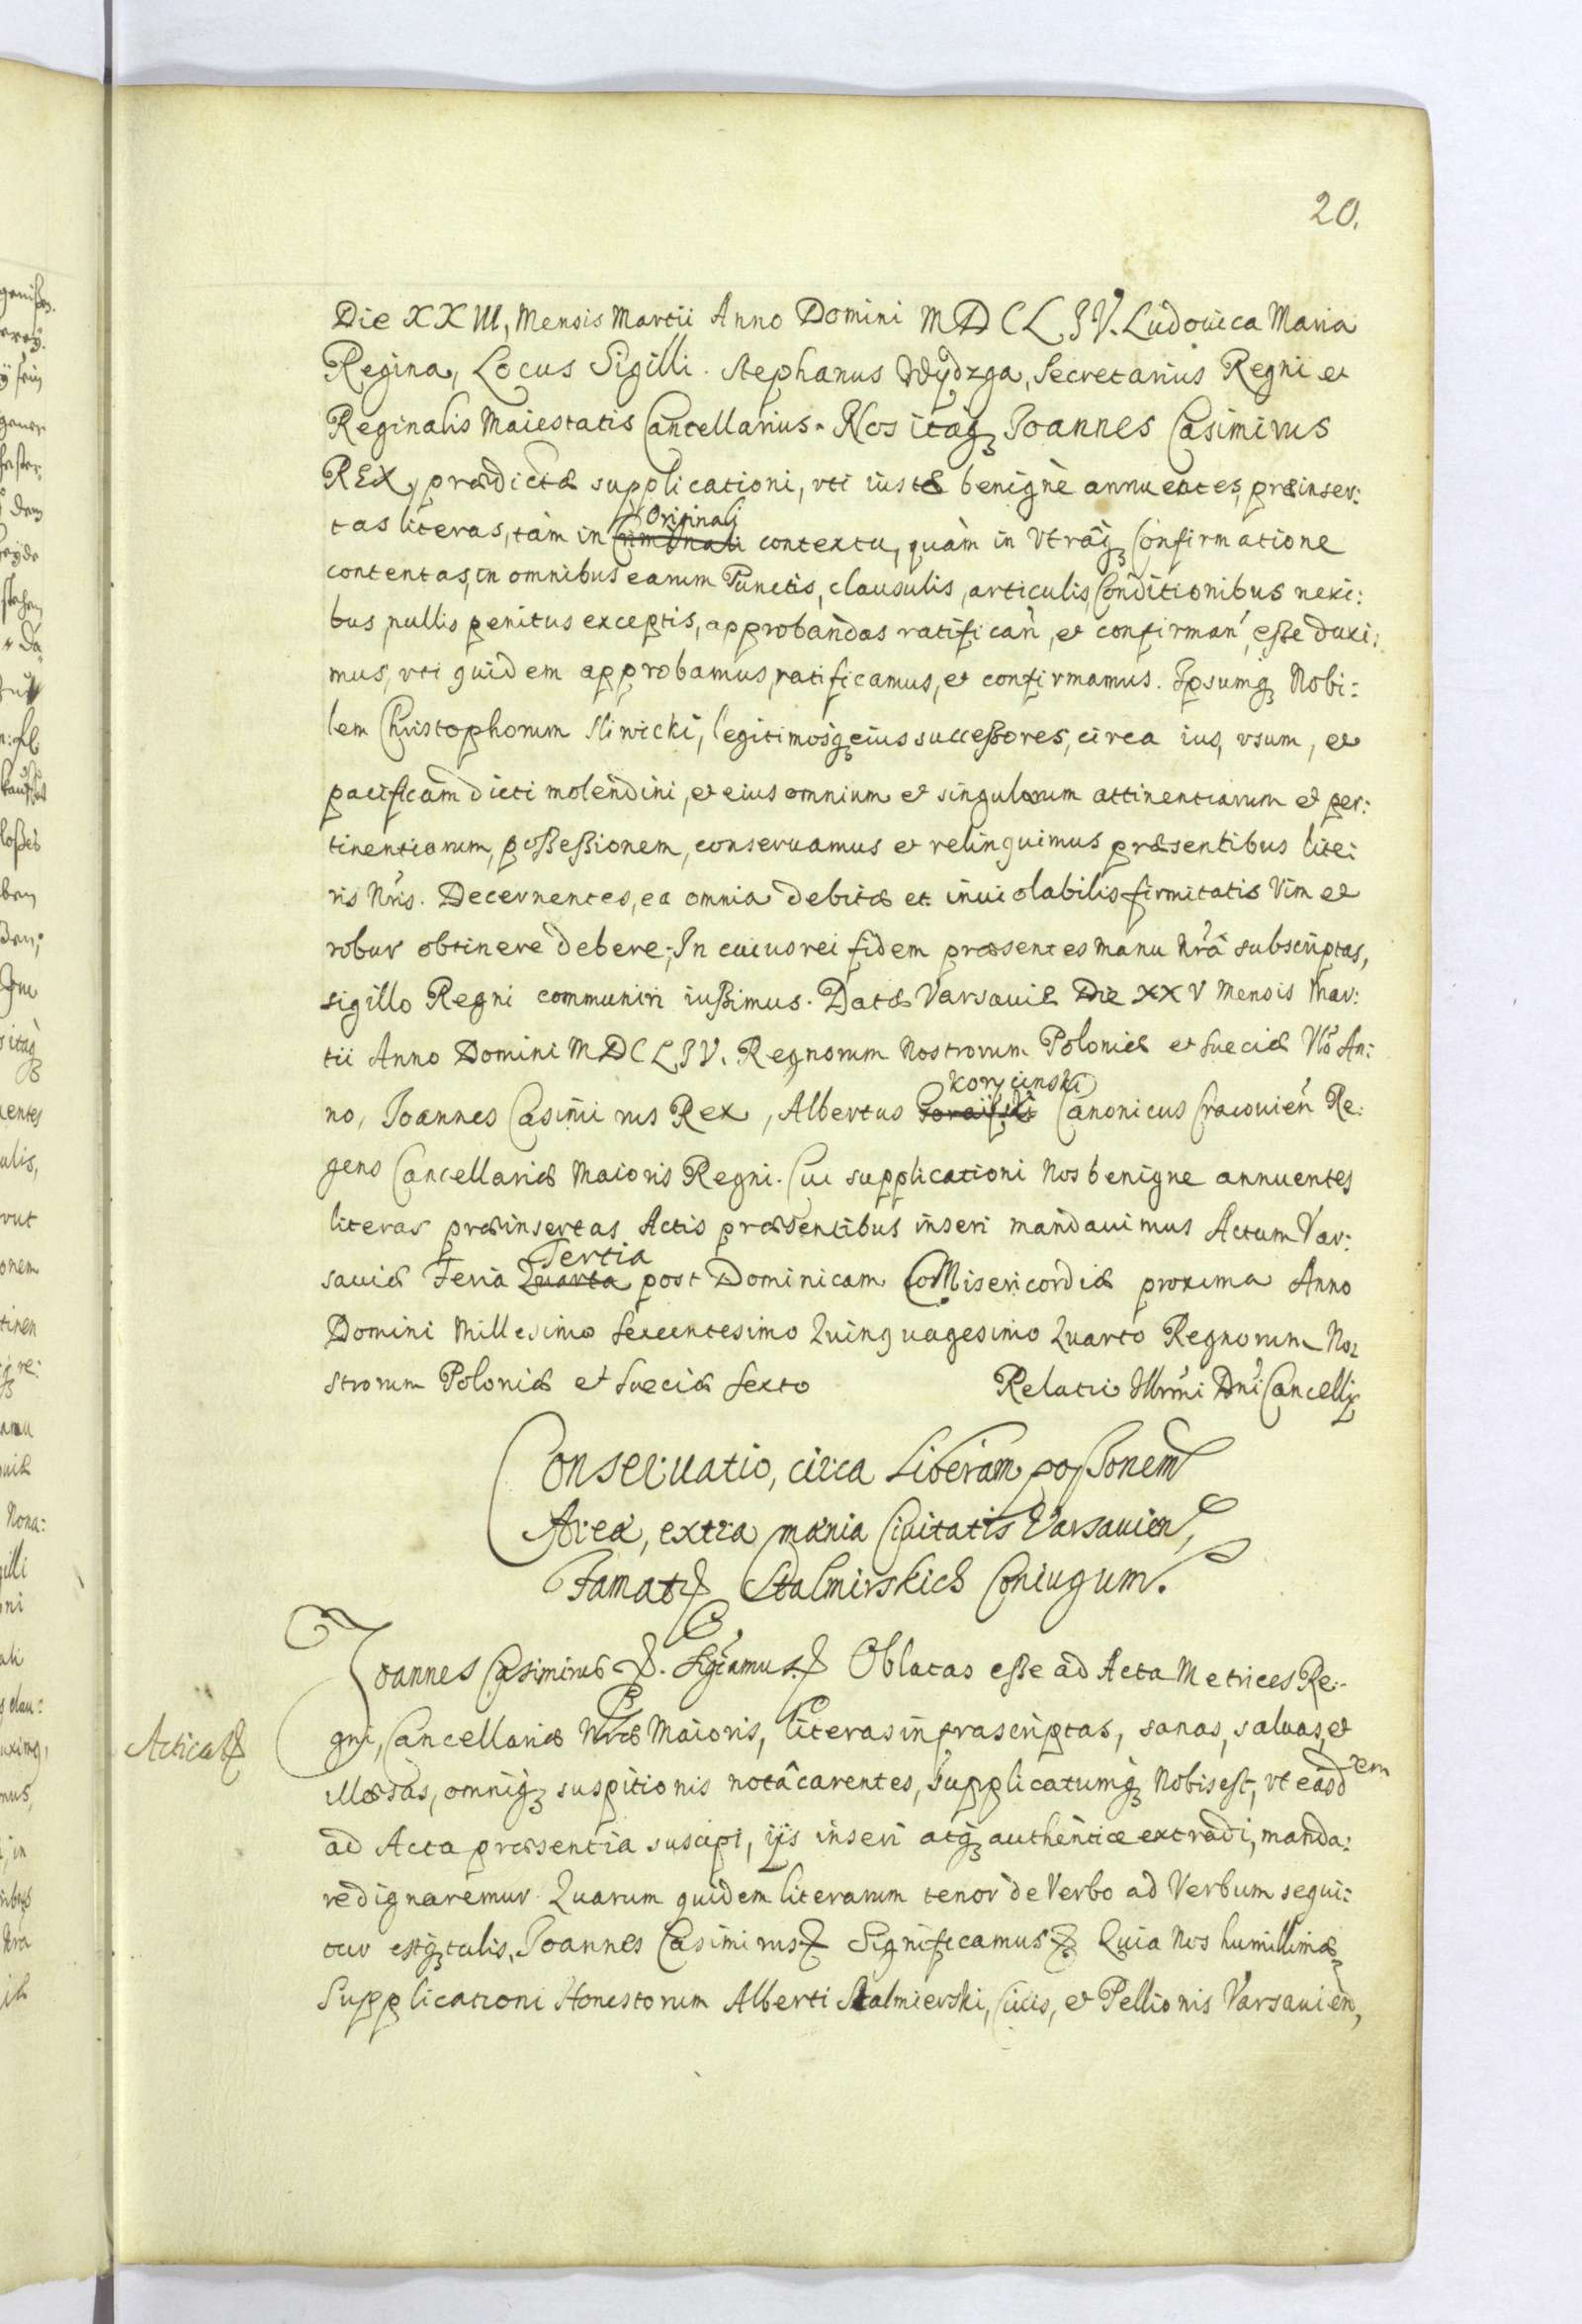 20.
Die XXIII, Mensis Martii Anno Domini MDCLIV. Ludouica Maria
Regina, Locus Sigilli. Stephanus Wydzga, Secretarius Regni et
Reginalis Maiestatis Cancellarius. Nos itaq₃ Joannes Casimirus
REX, prædictæ supplicationi, vti iustæ benignè annuentes, præinser:
tas literas, tàm in Originali contextu, quàm in Vtrâq₃ Confirmatione
contentas, in omnibus earum Punctis, clausulis, articulis, Conditionibus nexi:
bus, nullis penitus exceptis, approbandas ratifican̄, et confirman̄, eße duxi:
mus, vti quidem approbamus, ratificamus, et confirmamus. Ipsumq₃ Nobi:
lem Christophorum Sliwicki, legitimosq₃ eius succeßores, circa ius, vsum, et
pacificam dicti molendini, et eius omnium et singulorum attinentiarum et per:
tinentiarum, poßeßionem, conseruamus et relinquimus præsentibus lite:
ris Nr̄is. Decernentes, ea omnia debitæ et inuiolabilis firmitatis Vim et
robur obtinere debere; In cuius rei fidem præsentes manu Nr̄â subscriptas,
sigillo Regni communiri iußimus. Datæ Varsauiæ Die XXV Mensis Mar:
tii Anno Domini MDCLIV. Regnorum Nostrorum Poloniæ et Sueciæ VIº An:
no, Joannes Casimirus Rex, Albertus Korycinski Canonicus Cracouien̄ Re:
gens Cancellariæ Maioris Regni. Cui supplicationi Nos benigne annuentes
literas præinsertas Actis præsentibus inseri mandauimus Actum Var:
sauiæ Feria Quarta Tertia post Dominicam Misericordiæ proxima Anno
Domini Millesimo Sexcentesimo Quinquagesimo Quarto Regnorum No:
strorum Poloniæ et Sueciæ Sexto Relatio Illrm̄i Dn̄i Cancellr
Conseruatio, circa Liberam poßonem
Areæ, extra mænia Ciuitatis Varsauien,
Famat Stalmirskich Coniugum.
Joannes Casimirus. Sigc̄amus. Oblatas eße ad Acta Metrices Re:
Acticat
gni, Cancellariæ Nr̄æ Maioris, literas infrascriptas, sanas, saluas, et
illæsas, omniq₃ suspitionis notâ carentes, supplicatumq₃ Nobis est, vt easdem
ad Acta præsentia suscipi, iis inseri atq₃ authenticè extradi, manda:
re dignaremur. Quarum quidem literarum tenor de Verbo ad Verbum sequi:
tur estq₃ talis. Joannes Casimirus Significamus Quia Nos humillimæ
Supplicationi Honestorum Alberti Stalmierski, Ciuis, et Pellionis Varsauien,